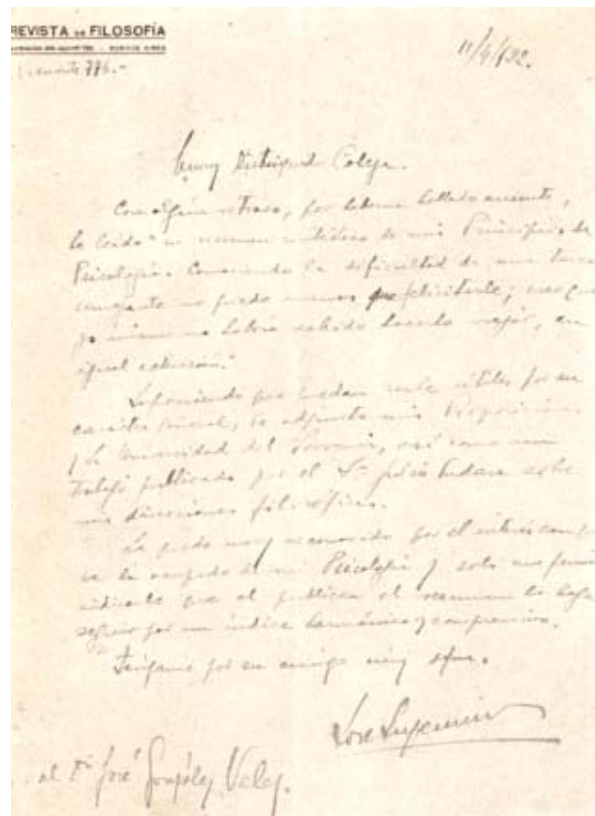 REVISTA DE FILOSOFÍA
BUENOS AIRES
Viamonte 776.-
11/9/922.
Muy distinguido Colega.
Con algún retraso, por haberme hallado ausente,
he leído su resumen sintético de mis Principios de
Psicología. Conociendo la dificultad de una tarea
semejante no puedo menos que felicitarle; creo que
yo mismo no habría sabido hacerlo mejor, en
igual extensión.
Suponiendo que puedan serle útiles por su
carácter general, le adjunto mis Proposiciones
y La Universidad del Porvenir, así como un
trabajo publicado por el Sr. Julio Endara sobre
mis direcciones filosóficas.
Le quedo muy reconocido por el interés con que
se ha ocupado de mi Psicología y solo me permito
indicarle que al publicar el resumen lo haga
seguir por un índice
Téngame por su amigo muy afmo.
José Ingenieros
al Dr. José González Velez.